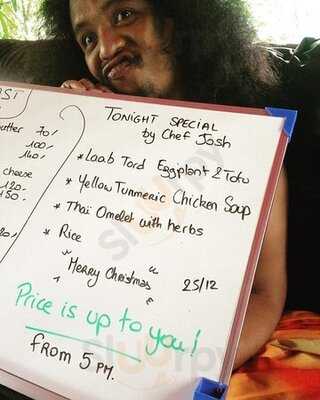 ST
utter 70/-
100/-
140/-
cheese
120.-
150.-
TONIGHT SPECIAL
by Chef Josh
* Laab Tord Eggplant & Tofu
* Yellow Turmeric Chicken Soup
* Thai Omelet with herbs
* Rice
" Merry Christmas " 25/12
Price is up to you!
from 5 PM.
sluurpy